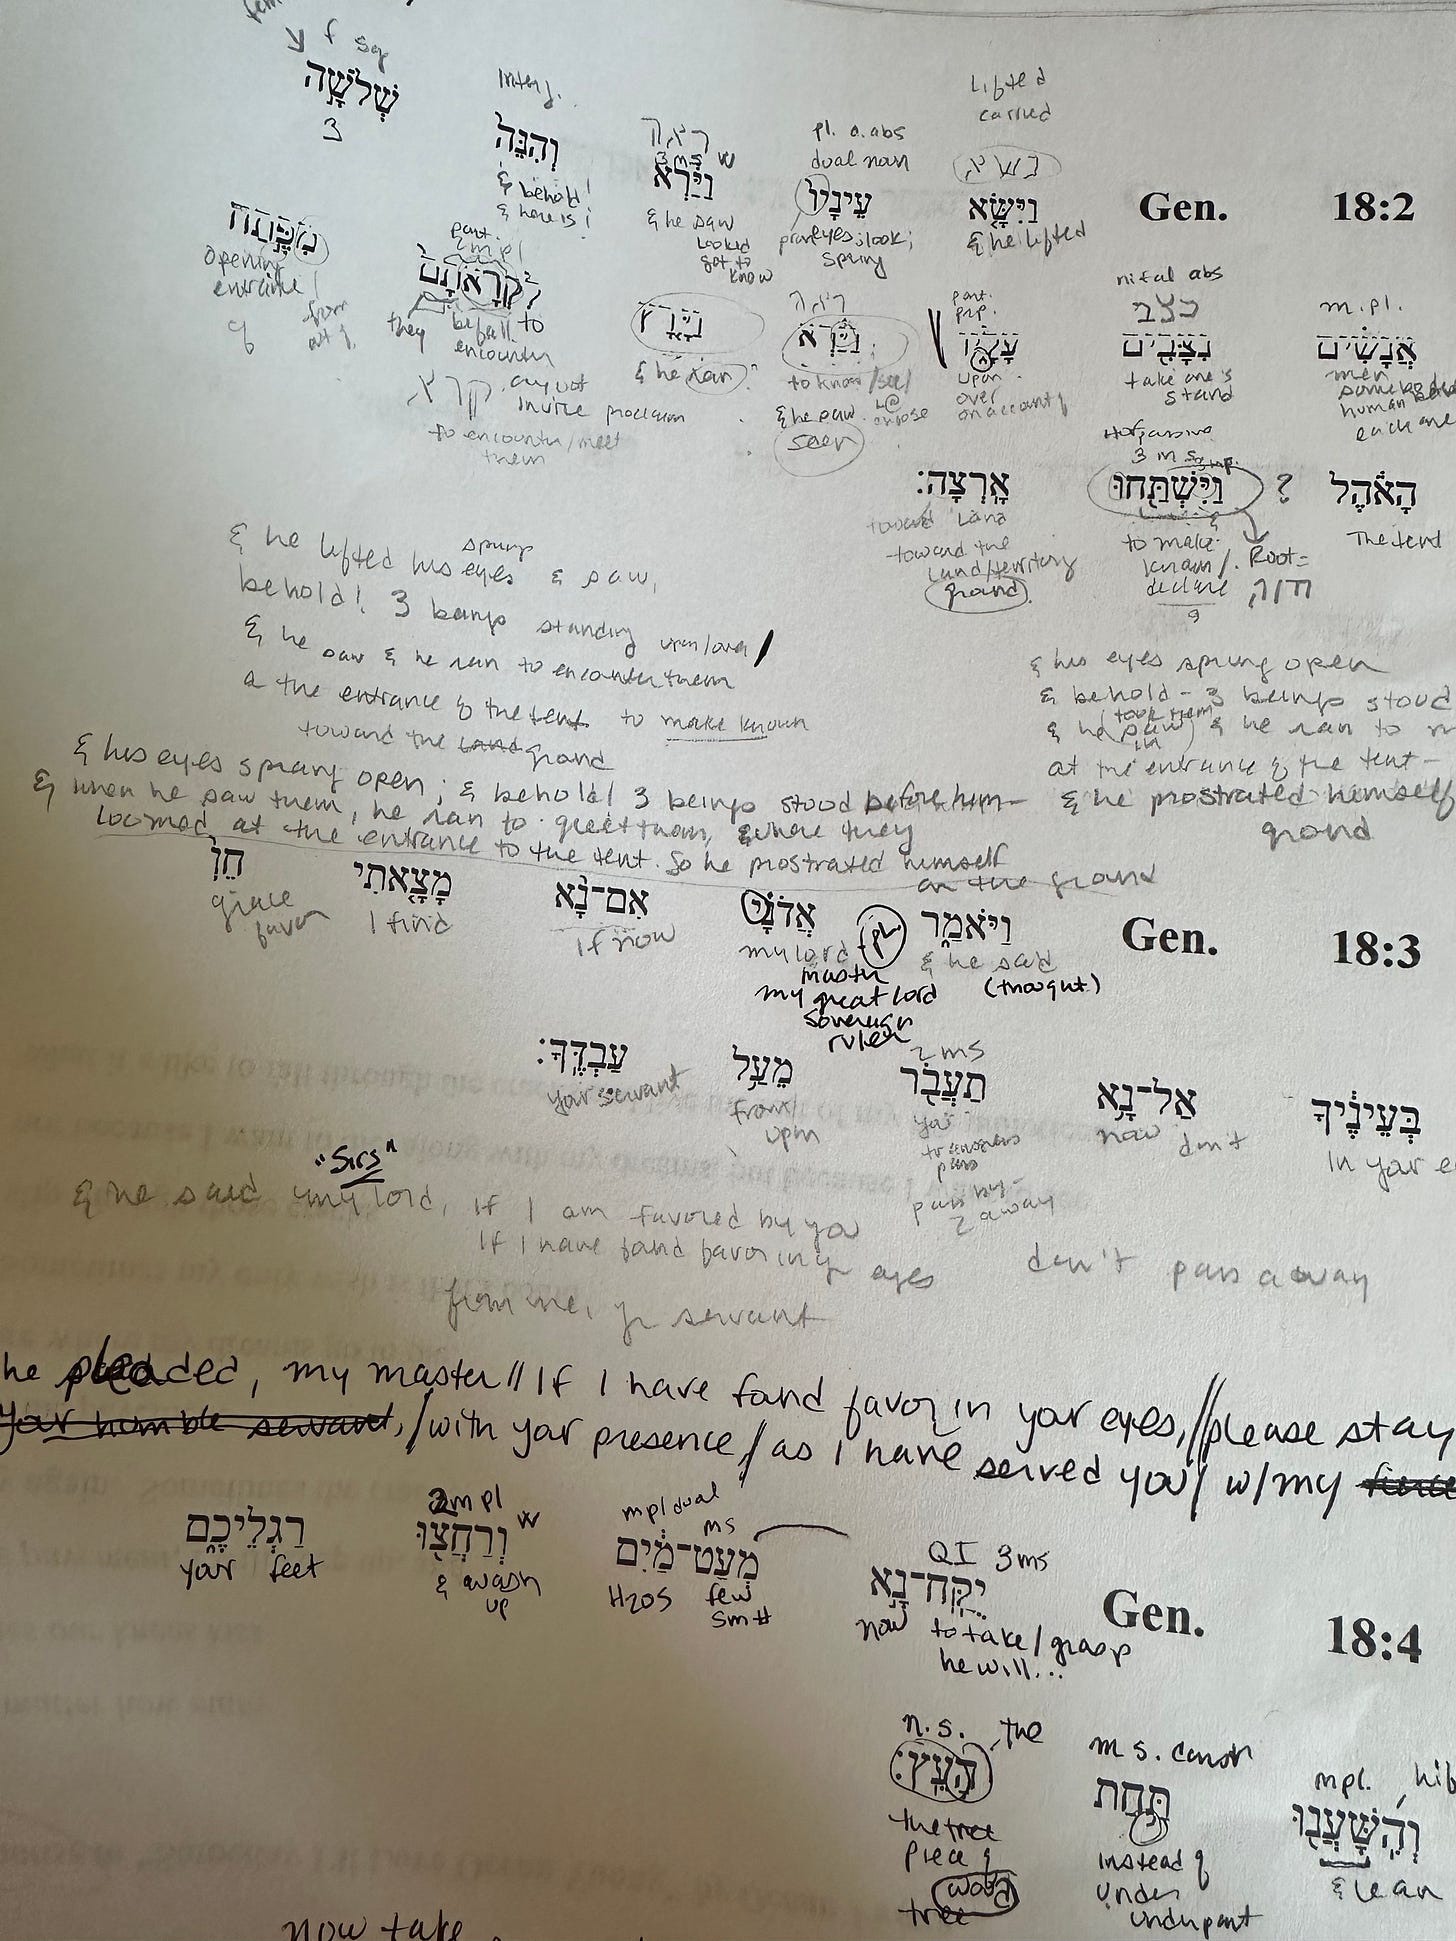 f sg
שְׁלֹשָׁה
3
Interj.
וְהִנֵּה
& behold!
& here is!
ראה
3 ms w
וַיַּרְא
& he saw
looked
get to
know
pl. a. abs
dual noun
עֵינָיו
eyes; look;
spring
Lifted
carried
נשא
וַיִּשָּׂא
& he lifted
Gen. 18:2
m. pl.
אֲנָשִׁים
men
somebody
human
each one
nifal abs
נצב
נִצָּבִים
take one's
stand
part.
prp.
עָלָיו
upon
over
on account of
ראה
וַיַּרְא
to know/see/
choose
& he saw
seen
וַיָּרׇץ
& he ran
part.
לִקְרָאתָם
they befall to
encounter
קרא cry out
invite proclaim
to encounter/meet
them
מִפֶּתַח
opening
entrance
from
הָאֹהֶל
The tent
Hof passive
3 m s
וַיִּשְׁתַּחוּ ?
to make
known/
declare
Root=
חוה
אָרְצָה׃
toward Land
toward the
land/territory
ground
& he lifted his eyes & saw,
sprung
behold! 3 beings standing upon/over/
& he saw & he ran to encounter them
a the entrance of the tent to make known
toward the land ground
& his eyes sprung open
& behold - 3 beings stood
& he (saw) & he ran to
(took them in)
at the entrance of the tent -
& he prostrated himself
ground
& his eyes sprang open; & behold! 3 beings stood before him -
& when he saw them, he ran to greet them, where they
loomed at the entrance to the tent. So he prostrated himself
on the ground
Gen. 18:3
וַיֹּאמַר
& he said
(thought)
אֲדֹנָי
my lord pl
master
my great lord
sovereign
ruler
אִם־נָא
if now
מָצָאתִי
I find
חֵן
grace
favor
בְּעֵינֶיךָ
In your
אַל־נָא
now don't
2 ms
תַעֲבֹר
pass
pass by -
away
מֵעַל
from/
upon
עַבְדֶּךָ׃
your servant
"Sirs"
& he said my lord, if I am favored by you
If I have found favor in yr eyes don't pass away
from me, yr servant
he pleaded, my master // If I have found favor in your eyes, // please stay
your humble servant, / with your presence / as I have served you / w/ my
Gen. 18:4
QI 3ms
יֻקַּח־נָא
now to take/grasp
he will...
mpl dual
ms
מְעַט־מַיִם
H2Os few
sm #
2m pl w
וְרַחֲצוּ
& wash
up
רַגְלֵיכֶם
your feet
mpl. hif
וְהִשָּׁעֲנוּ
& lean
m s. constr
תַּחַת
instead of
under
underpart
n. s. the
הָעֵץ׃
the tree
piece of
wood
tree
now take